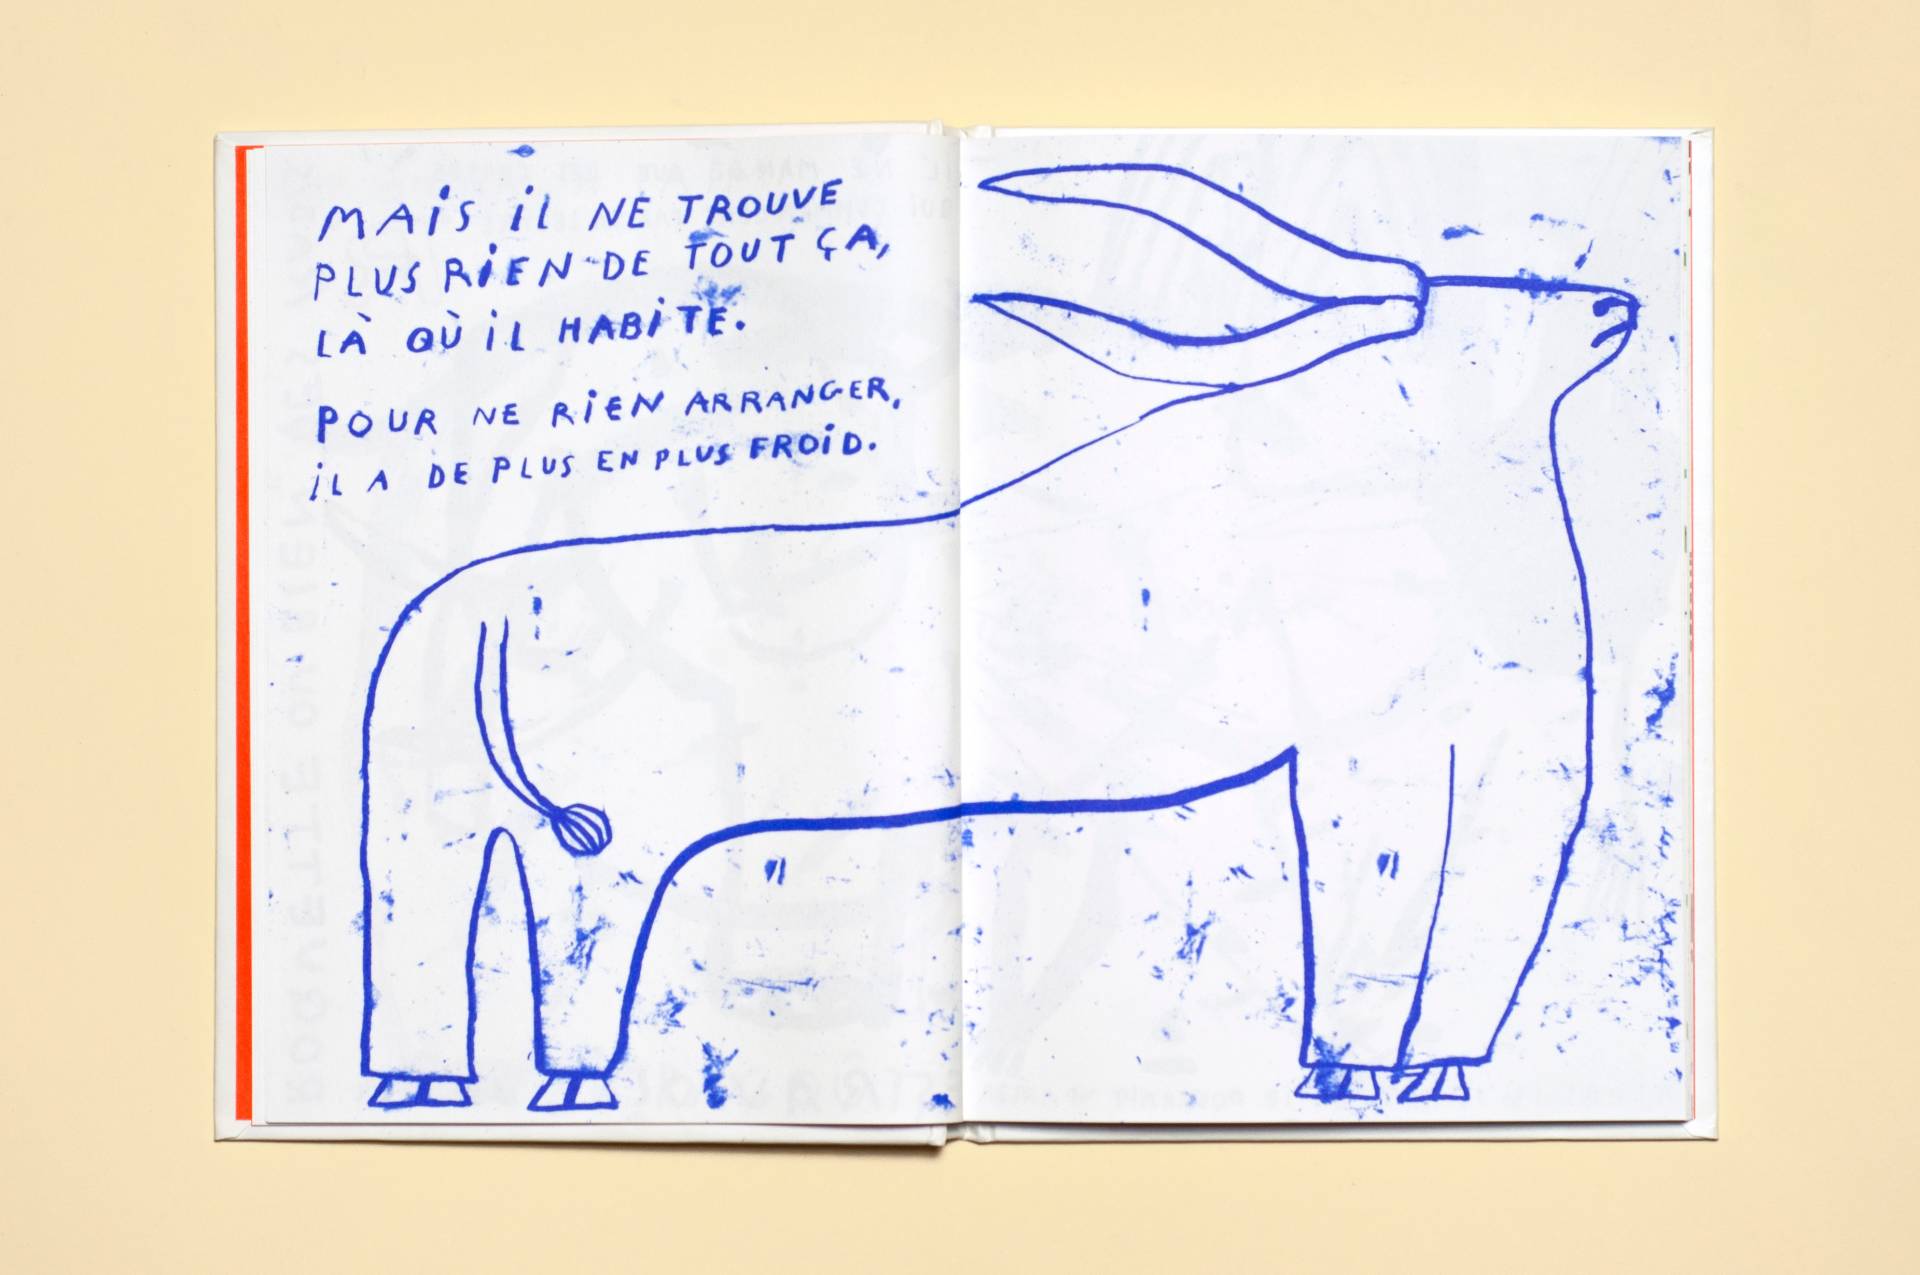 MAiS iL NE TROUVE
PLUS RiEN DE TOUT ÇA,
LÀ OÙ iL HABiTE.
POUR NE RiEN ARRANGER,
iL A DE PLUS EN PLUS FROiD.